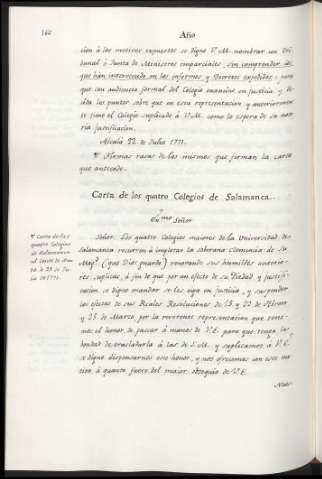 160
Año
cion á los motivos expuestos se digne V.M. nombrar un Tri-
bunal ó Junta de Ministros imparciales, sin comprender los
que hán intervenido en los informes y Decretos expedidos; para
que con audiencia formal del Colegio examine en Justicia y de-
cida los puntos sobre que en esta representacion y anteriormen-
te tiene el Colegio suplicado á V.M. como lo espera de su noto-
ria justificacion.
Alcalá 22 de Julio 1771.
Firmas raras de los mismos que firman la carta
que antecede.
Carta de los quatro Colegios de Salamanca.
Ex.mo Señor
Carta de los
quatro Colegios
de Salamanca
Señor. Los quatro Colegios maiores de la Universidad de
Salamanca recurren á implorar la soberana Clemencia de Su
Mag.d (que Dios guarde) renovando sus humildes anterio-
res suplicas, á fin de que por un efecto de su Piedad y justifi-
cacion, se digne mandar se les oiga en Justicia, y suspender
los efectos de sus Reales Resoluciones de 15 y 22 de Febrero
y 23 de Marzo, por la reverente representacion que tene-
mos el honor de pasar á manos de V.E. para que tenga la
bondad de trasladarla á las de S.M. y suplicamos á V.E.
se digne dispensarnos este honor, y nos ofrecemos con este mo-
tivo á quanto fuere del maior obsequio de V.E.